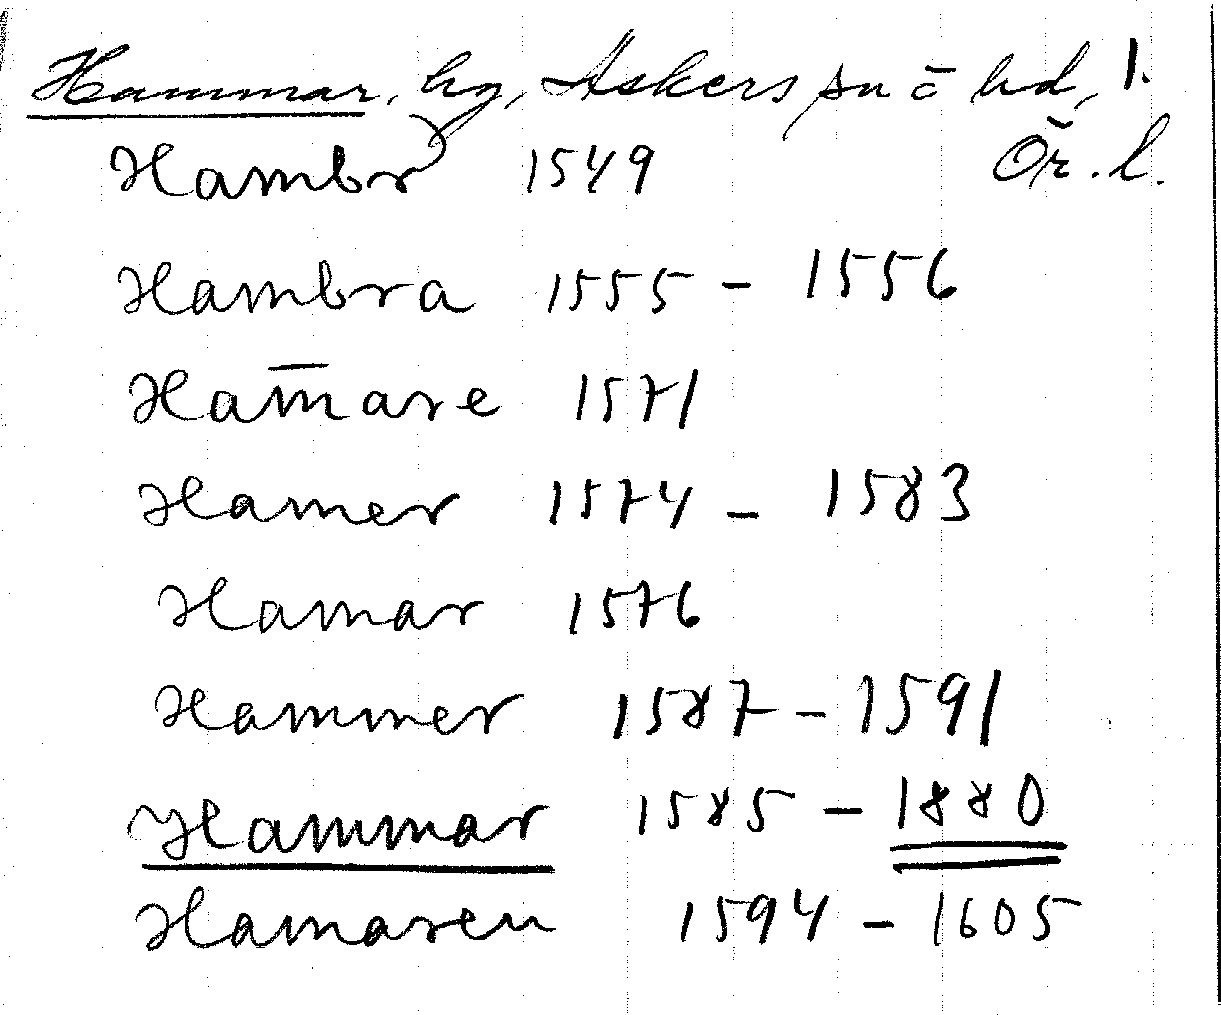 Hammar, by, Askers sn o hd, 1.
Ör. l.
Hambr 1549
Hambra 1555 - 1556
Ham̄are 1571
Hamer 1574 - 1583
Hamar 1576
Hammer 1587 - 1591
Hammar 1585 - 1880
Hamaren 1594 - 1605